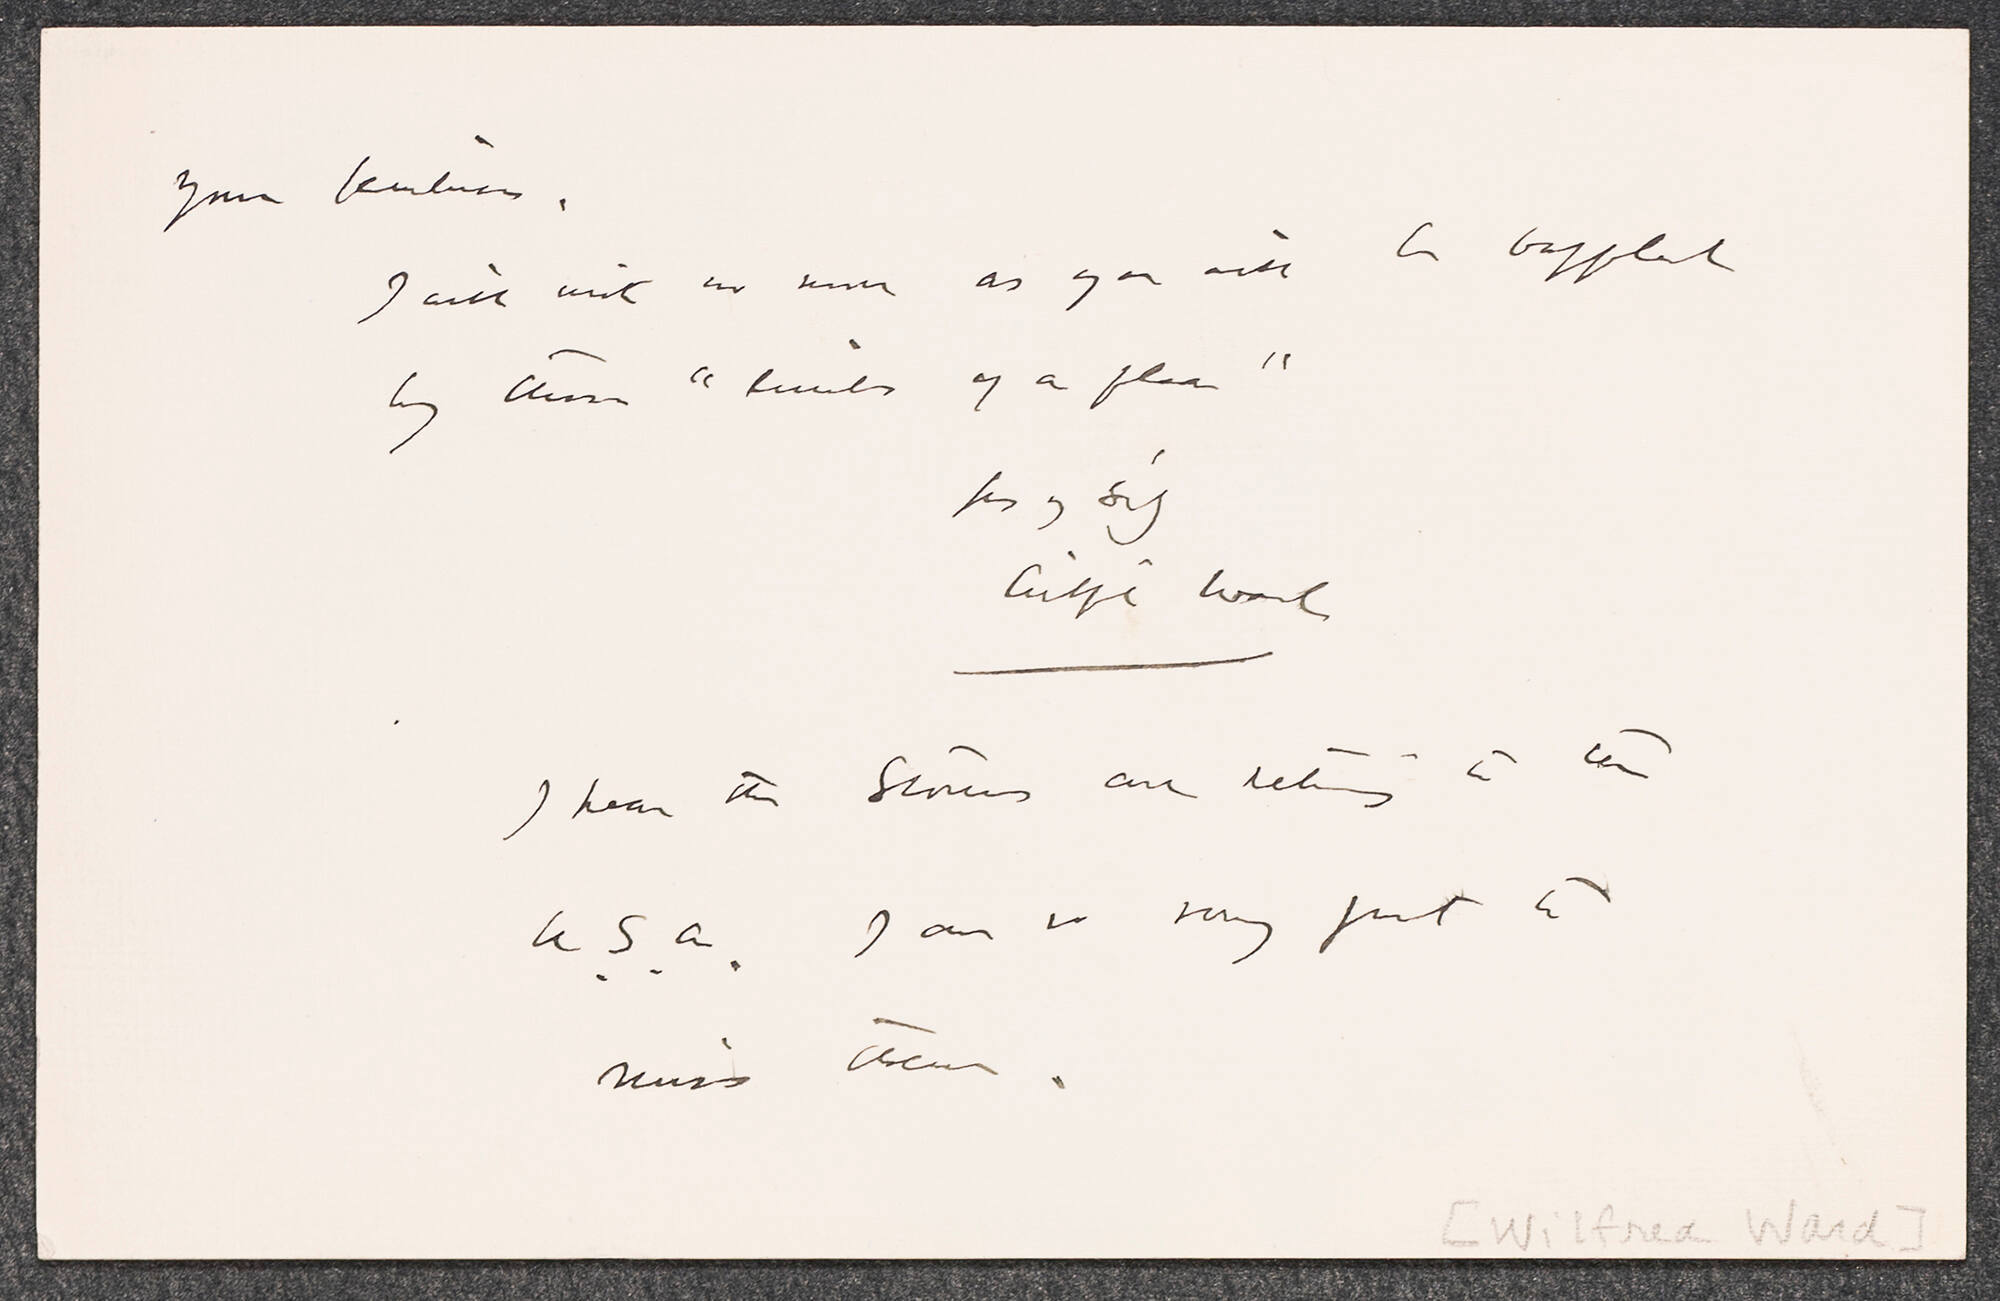 your kindness.
I will write no more as you will be baffled
by these "limits of a flea"
Wilfd Ward
I hear the Stories are returning to the
U.S.A. I am so sorry just to
miss them.
[Wilfred Ward]